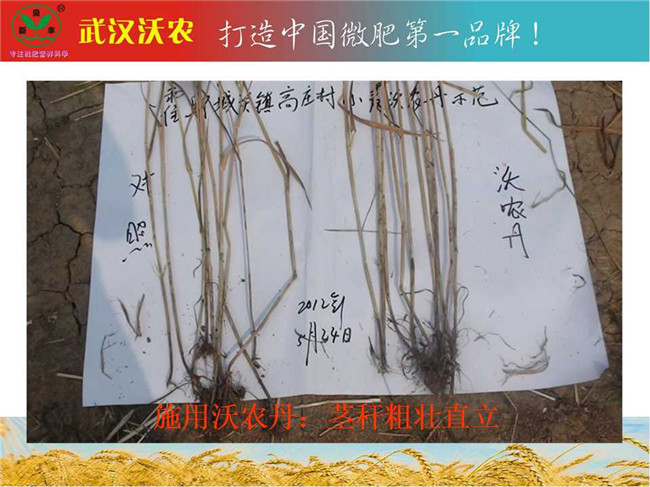 武汉沃农 打造中国微肥第一品牌！
城关镇高庄村小麦沃农丹示范
对照
沃农丹
2012年
5月24日
施用沃农丹：茎秆粗壮直立